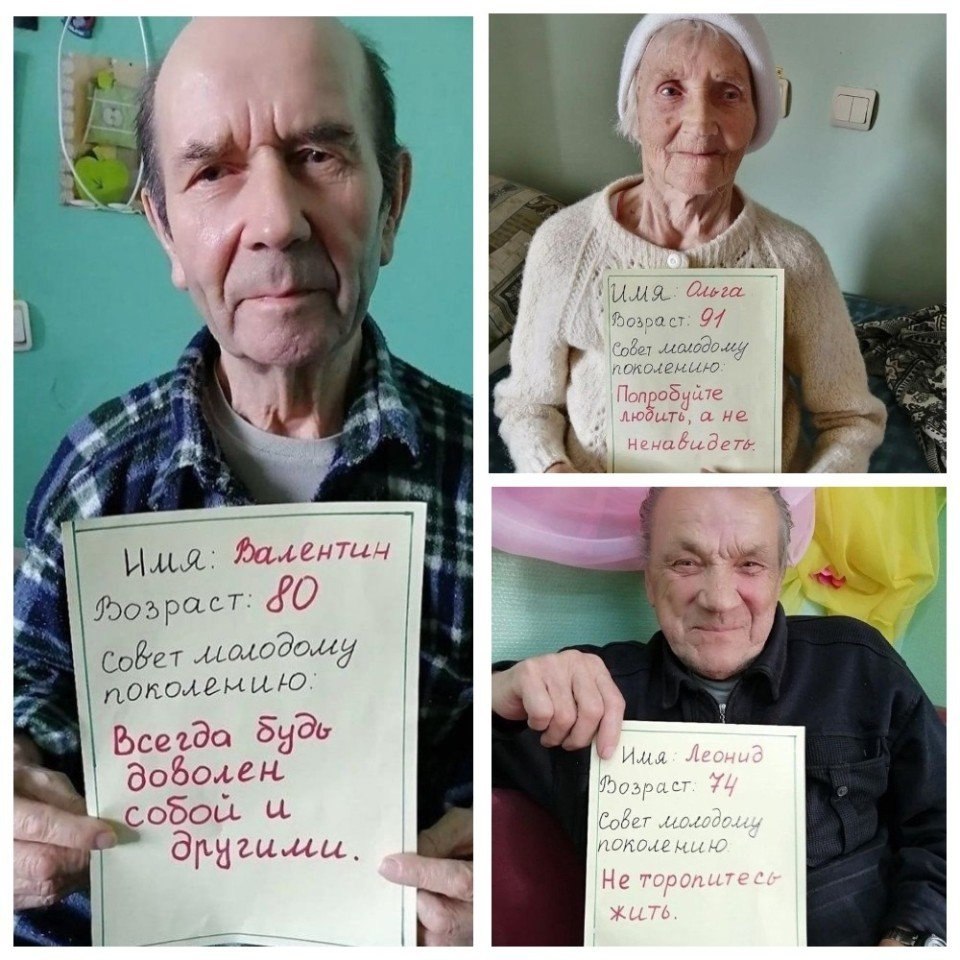 Имя: Валентин
Возраст: 80
Совет молодому
поколению:
Всегда будь
доволен
собой и
другими.
Имя: Ольга
Возраст: 91
Совет молодому
поколению:
Попробуйте
любить, а не
ненавидеть.
Имя: Леонид
Возраст: 74
Совет молодому
поколению
Не торопитесь
жить.